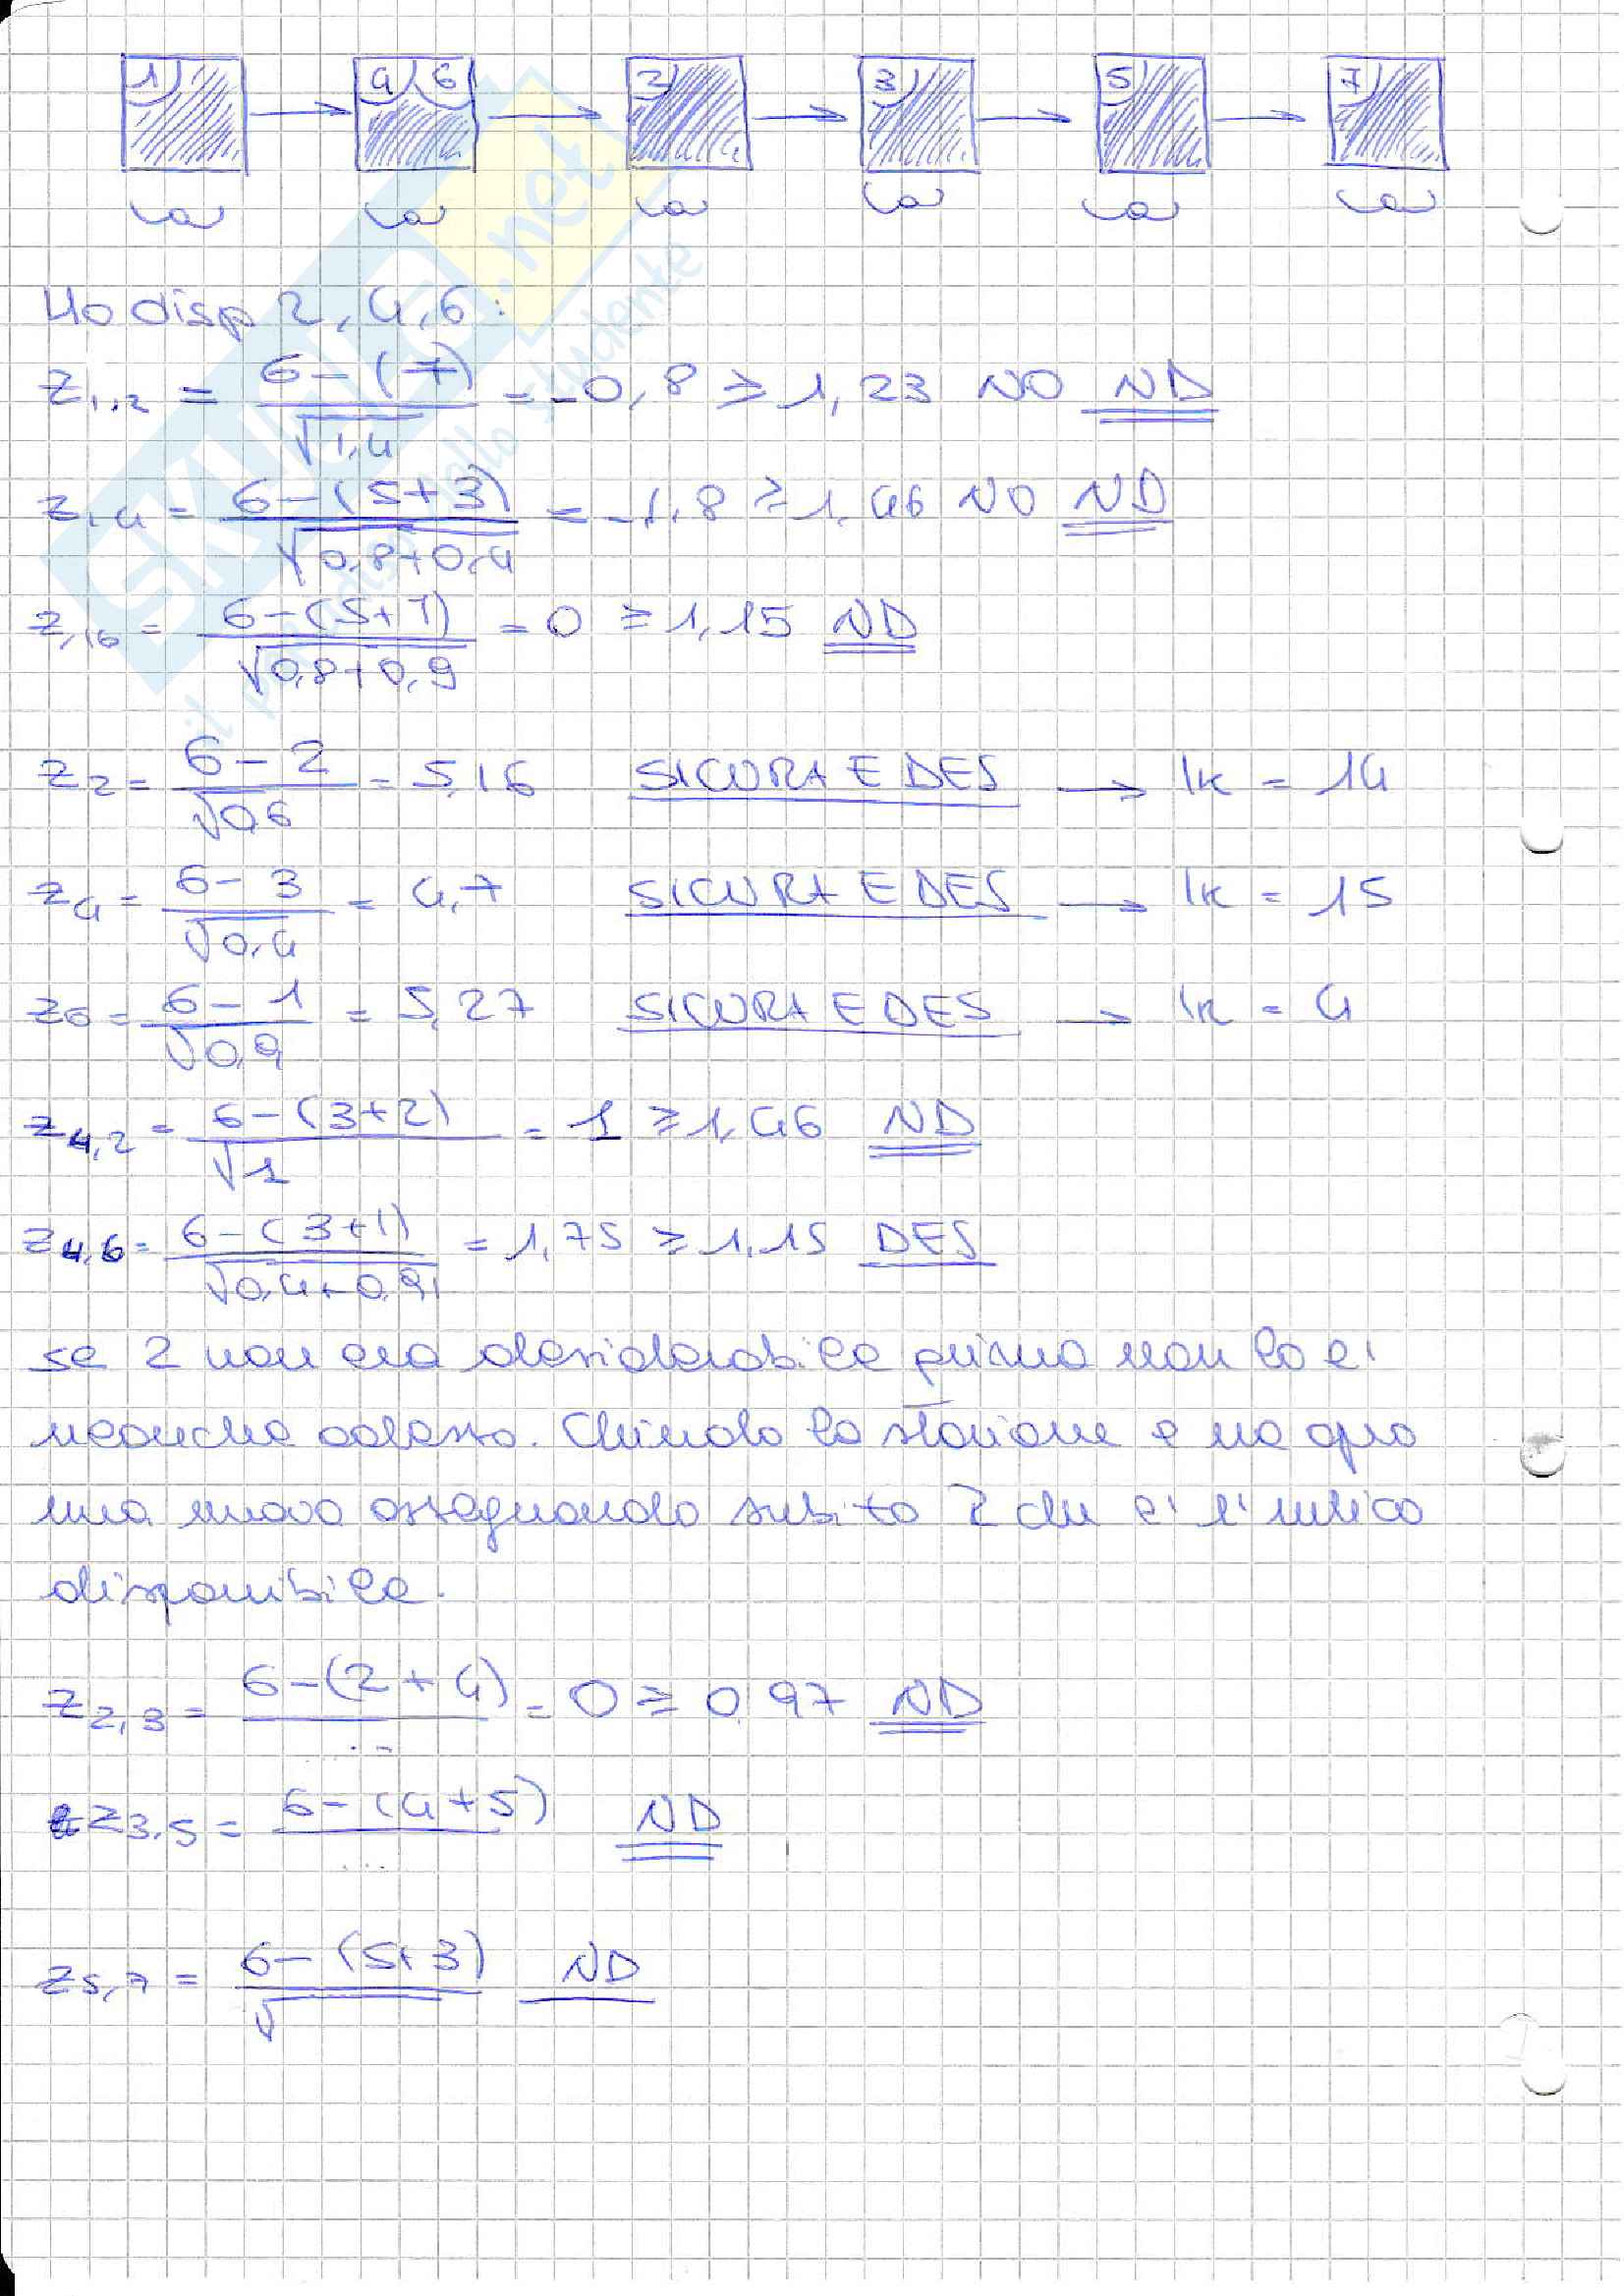 1 4 6 2 3 5 7
Ho disp 2, 4, 6:
Z1,2 = 6-(7) / √1,4 = -0,8 ≥ 1,23 NO ND
Z1,4 = 6-(5+3) / √0,8+0,4 = -1,8 ≥ 1,46 NO ND
Z1,6 = 6-(5+1) / √0,8+0,9 = 0 ≥ 1,15 ND
Z2 = 6-2 / √0,6 = 5,16 SICURA E DES → Ik = 14
Z4 = 6-3 / √0,4 = 4,7 SICURA E DES → Ik = 15
Z6 = 6-1 / √0,9 = 5,27 SICURA E DES → Ik = 4
Z4,2 = 6-(3+2) / √1 = 1 ≥ 1,46 ND
Z4,6 = 6-(3+1) / √0,4+0,91 = 1,75 ≥ 1,15 DES
se 2 non era desiderabile prima non lo e'
neanche adesso. Chiudo la stazione e ne apro
una nuova assegnando subito 2 che e' l'unico
disponibile.
Z2,3 = 6-(2+4) / ... = 0 ≥ 0,97 ND
Z3,5 = 6-(4+5) / ... ND
Z5,7 = 6-(5+3) / √ ND
SKUOLA.net